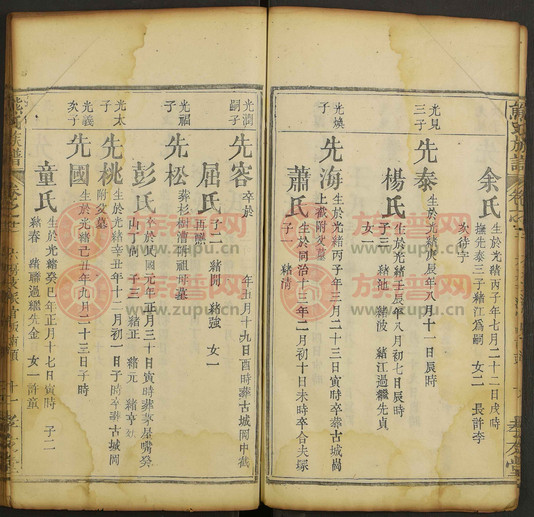 余氏
生於光緒丙子年七月二十二日戌時
撫先泰三子緒江爲嗣 女二 長許李
次待字
光見
三子
先泰
生於光緒庚辰年八月十一日辰時
楊氏
生於光緒壬辰年八月初七日辰時
子三 緒池 緒波 緒江過繼先貞
女一
光煥
子
先海
生於光緒丙子年三月二十三日寅時卒葬古城崗
上截附父墓
蕭氏
生於同治十三年二月初十日未時卒合夫塚
子一 緒清
光潤
嗣子
先容
卒於
年五月十九日酉時葬古城崗中截
屈氏
子二 緒開 緒強 女一
再醮
光福
子
先松
葬杉樹漕祖母墓
彭氏
生於民國元年正月三十日寅時葬茅屋嘴癸
山丁向 子三 緒正 緒元
光太
子
先桃
生於光緒辛丑年十二月初一日子時卒葬古城崗
附父墓
光義
次子
先國
生於光緒己丑年九月二十三日子時
童氏
生於光緒癸巳年正月十七日寅時 子二
緒春 緒聯過繼先金 女一許童
熊氏族譜